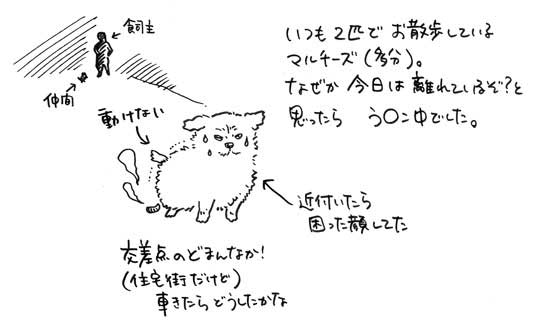 いつも2匹でお散歩している
マルチーズ(多分)。
なぜか今日は離れているぞ?と
思ったら う〇コ中でした。
飼主
仲間
動けない
近付いたら
困った顔してた
交差点のどまんなか!
(住宅街だけど)
車きたらどうしたかな